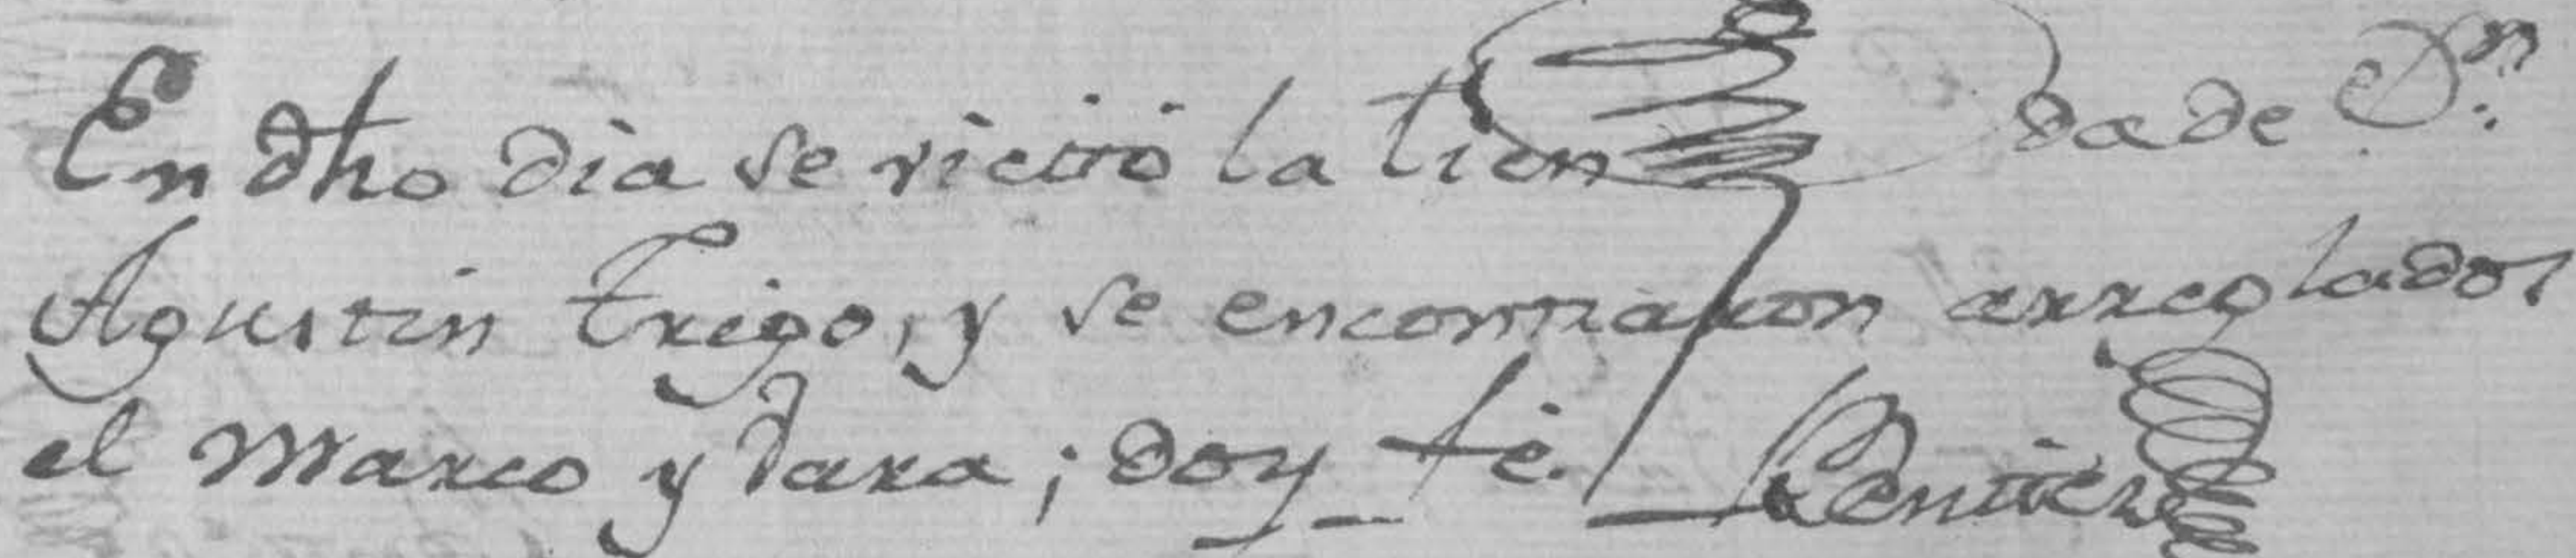 En dho dia se vicitó la tienda de Dn.
Agustin Trigo, y se encontraron arreglados
el Marco y Vara; doy fé.